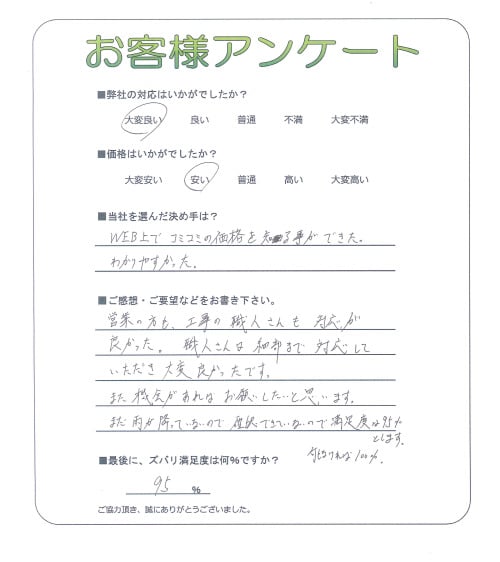 お客様アンケート
■弊社の対応はいかがでしたか？
大変良い 良い 普通 不満 大変不満
■価格はいかがでしたか？
大変安い 安い 普通 高い 大変高い
■当社を選んだ決め手は？
WEB上でコミコミの価格を知る事ができた。
わかりやすかった。
■ご感想・ご要望などをお書き下さい。
営業の方も、工事の職人さんも対応が
良かった。職人さんは細部まで対応して
いただき大変良かったです。
また機会があればお願いしたいと思います。
まだ雨が降っていないので確認できていないので満足度は95%
とします。
■最後に、ズバリ満足度は何%ですか？
なければ100%.
95 %
ご協力頂き、誠にありがとうございました。